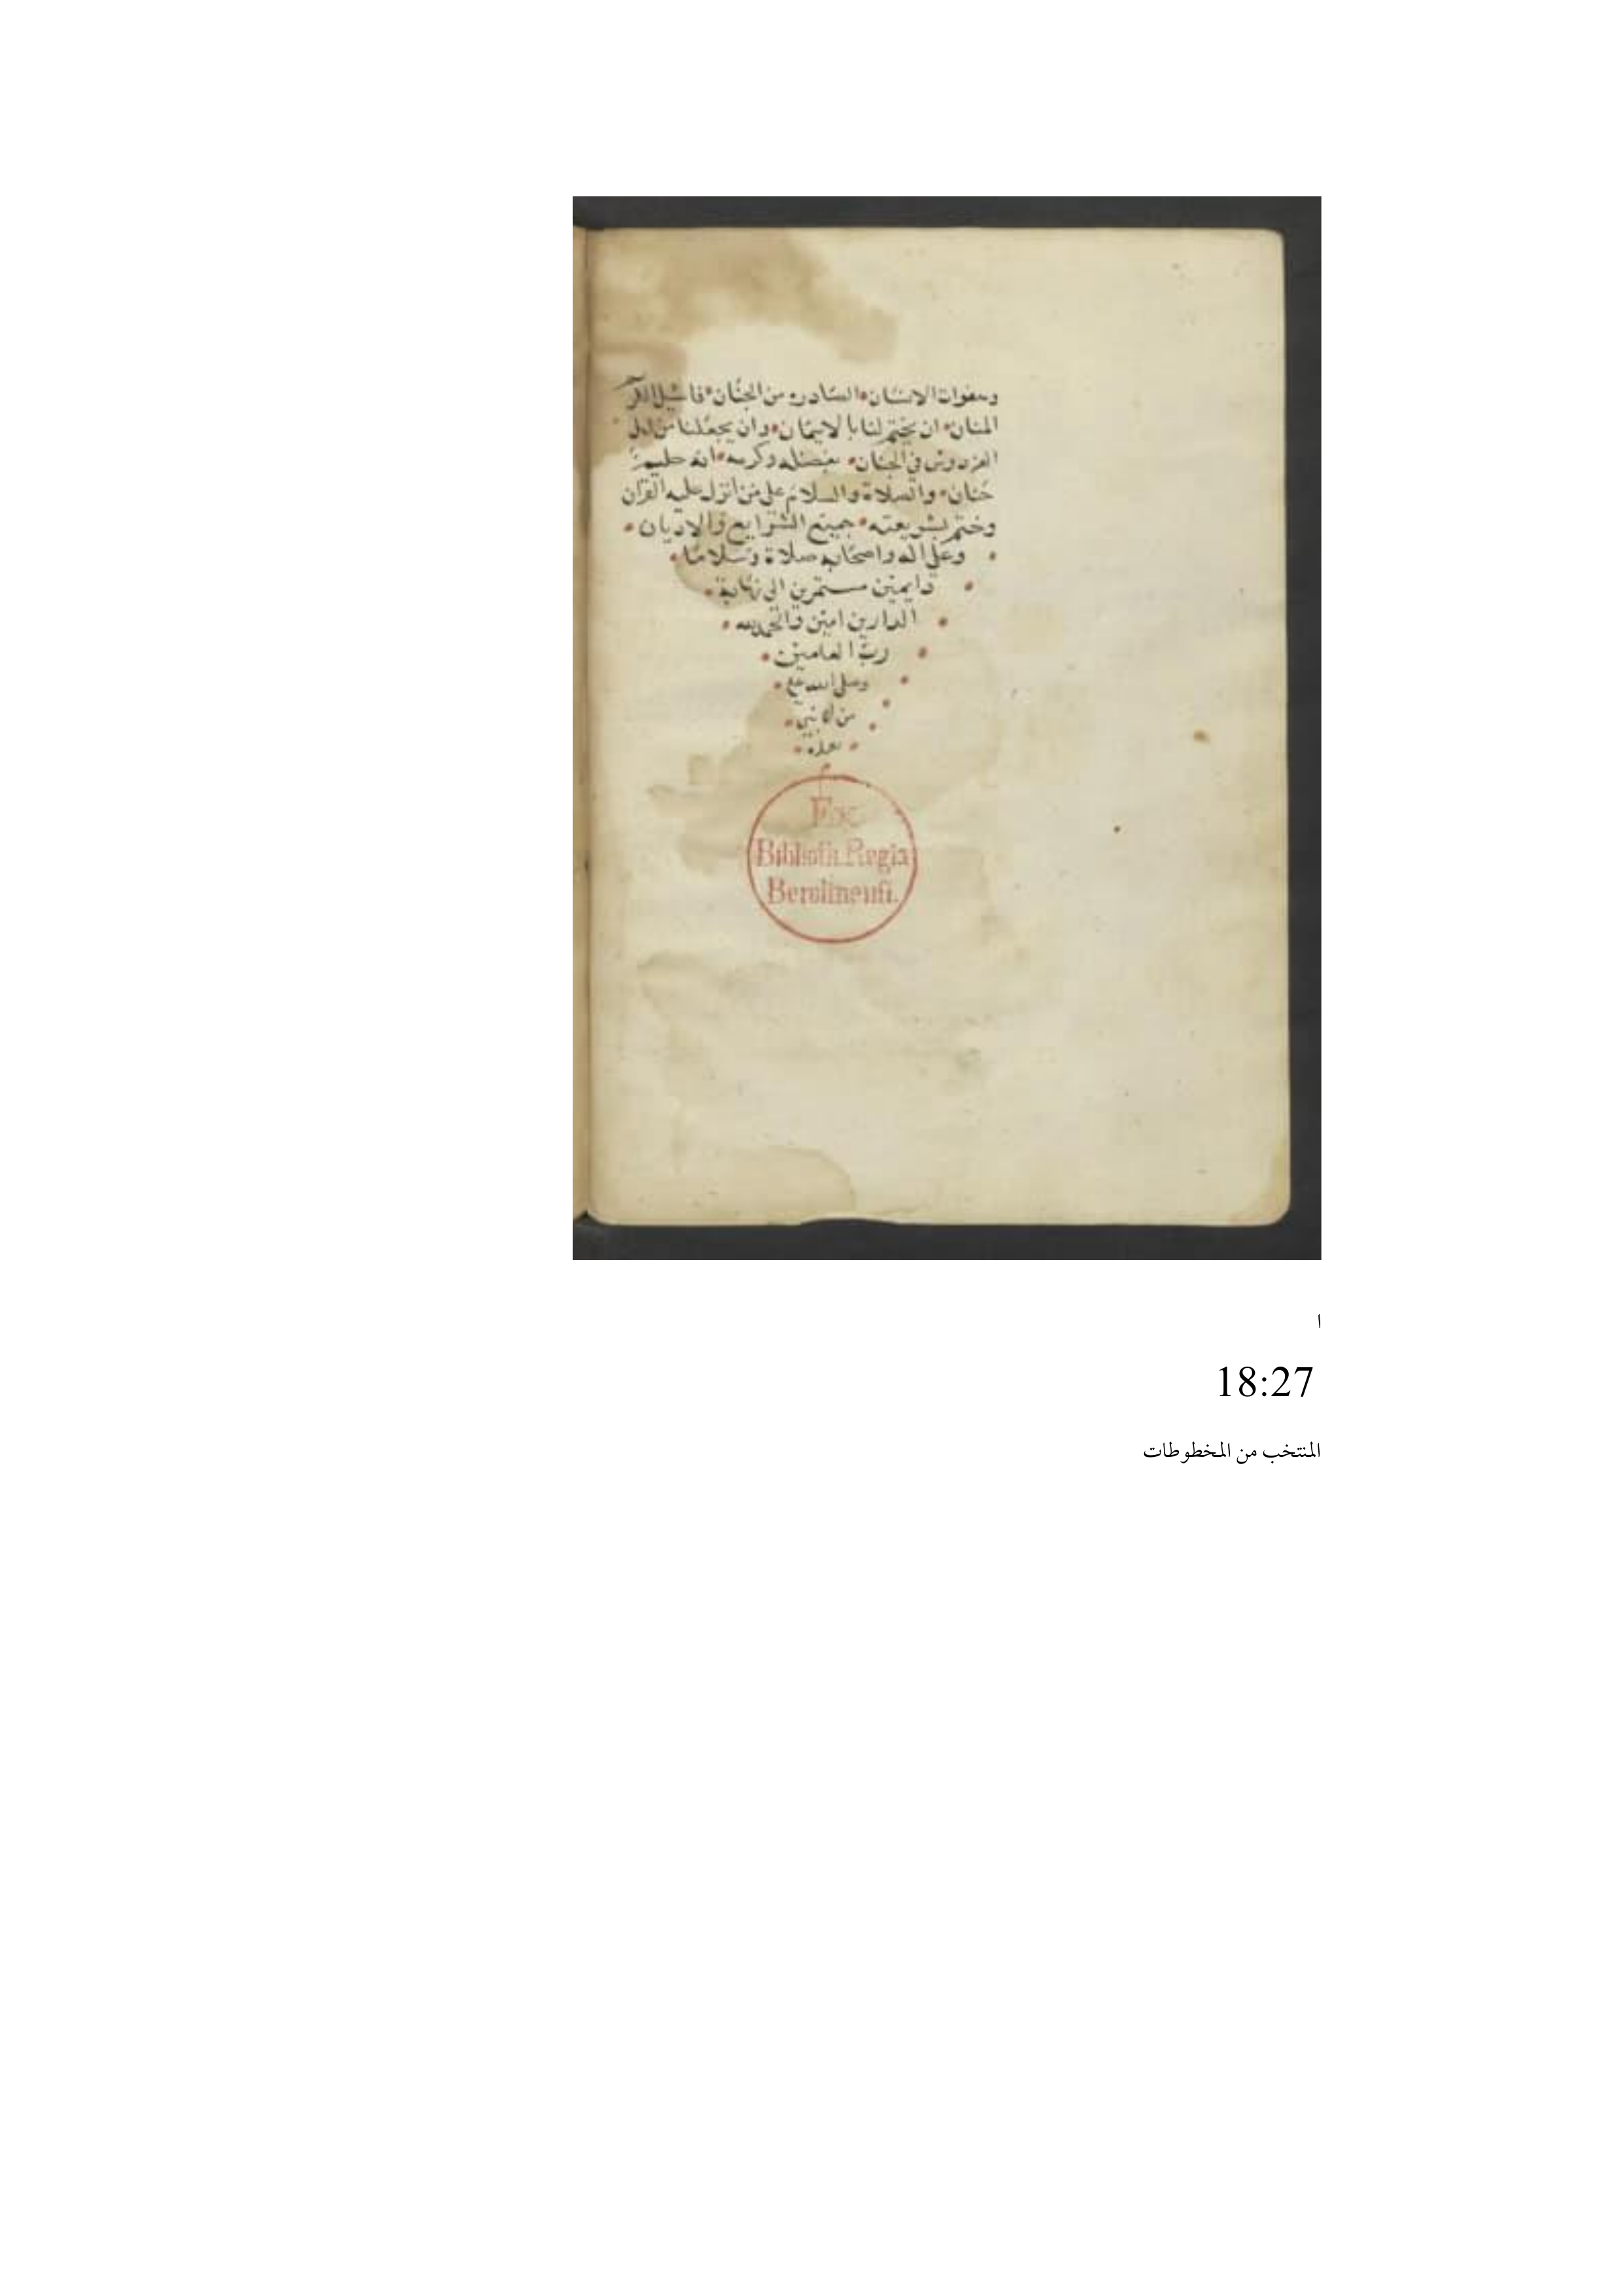 وهفوات الانسان الصادره من الجنان فاسيل الكريم
المنان ان يختم لنا بالايمان وان يجعلنا من اهل
الفردوس في الجنان بفضله وكرمه انه حليم
حنان والصلاة والسلام على من انزل عليه القران
وختم بشريعته جميع الشرايع والاديان
وعلى اله واصحابه صلاة وسلاما
دايمين مستمرين الى نهاية
الدارين امين والحمد لله
رب العامين
وصلى الله على
من لا نبي
بعده
Ex
Biblioth. Regia
Berolinensi.
ا
18:27
المنتخب من المخطوطات